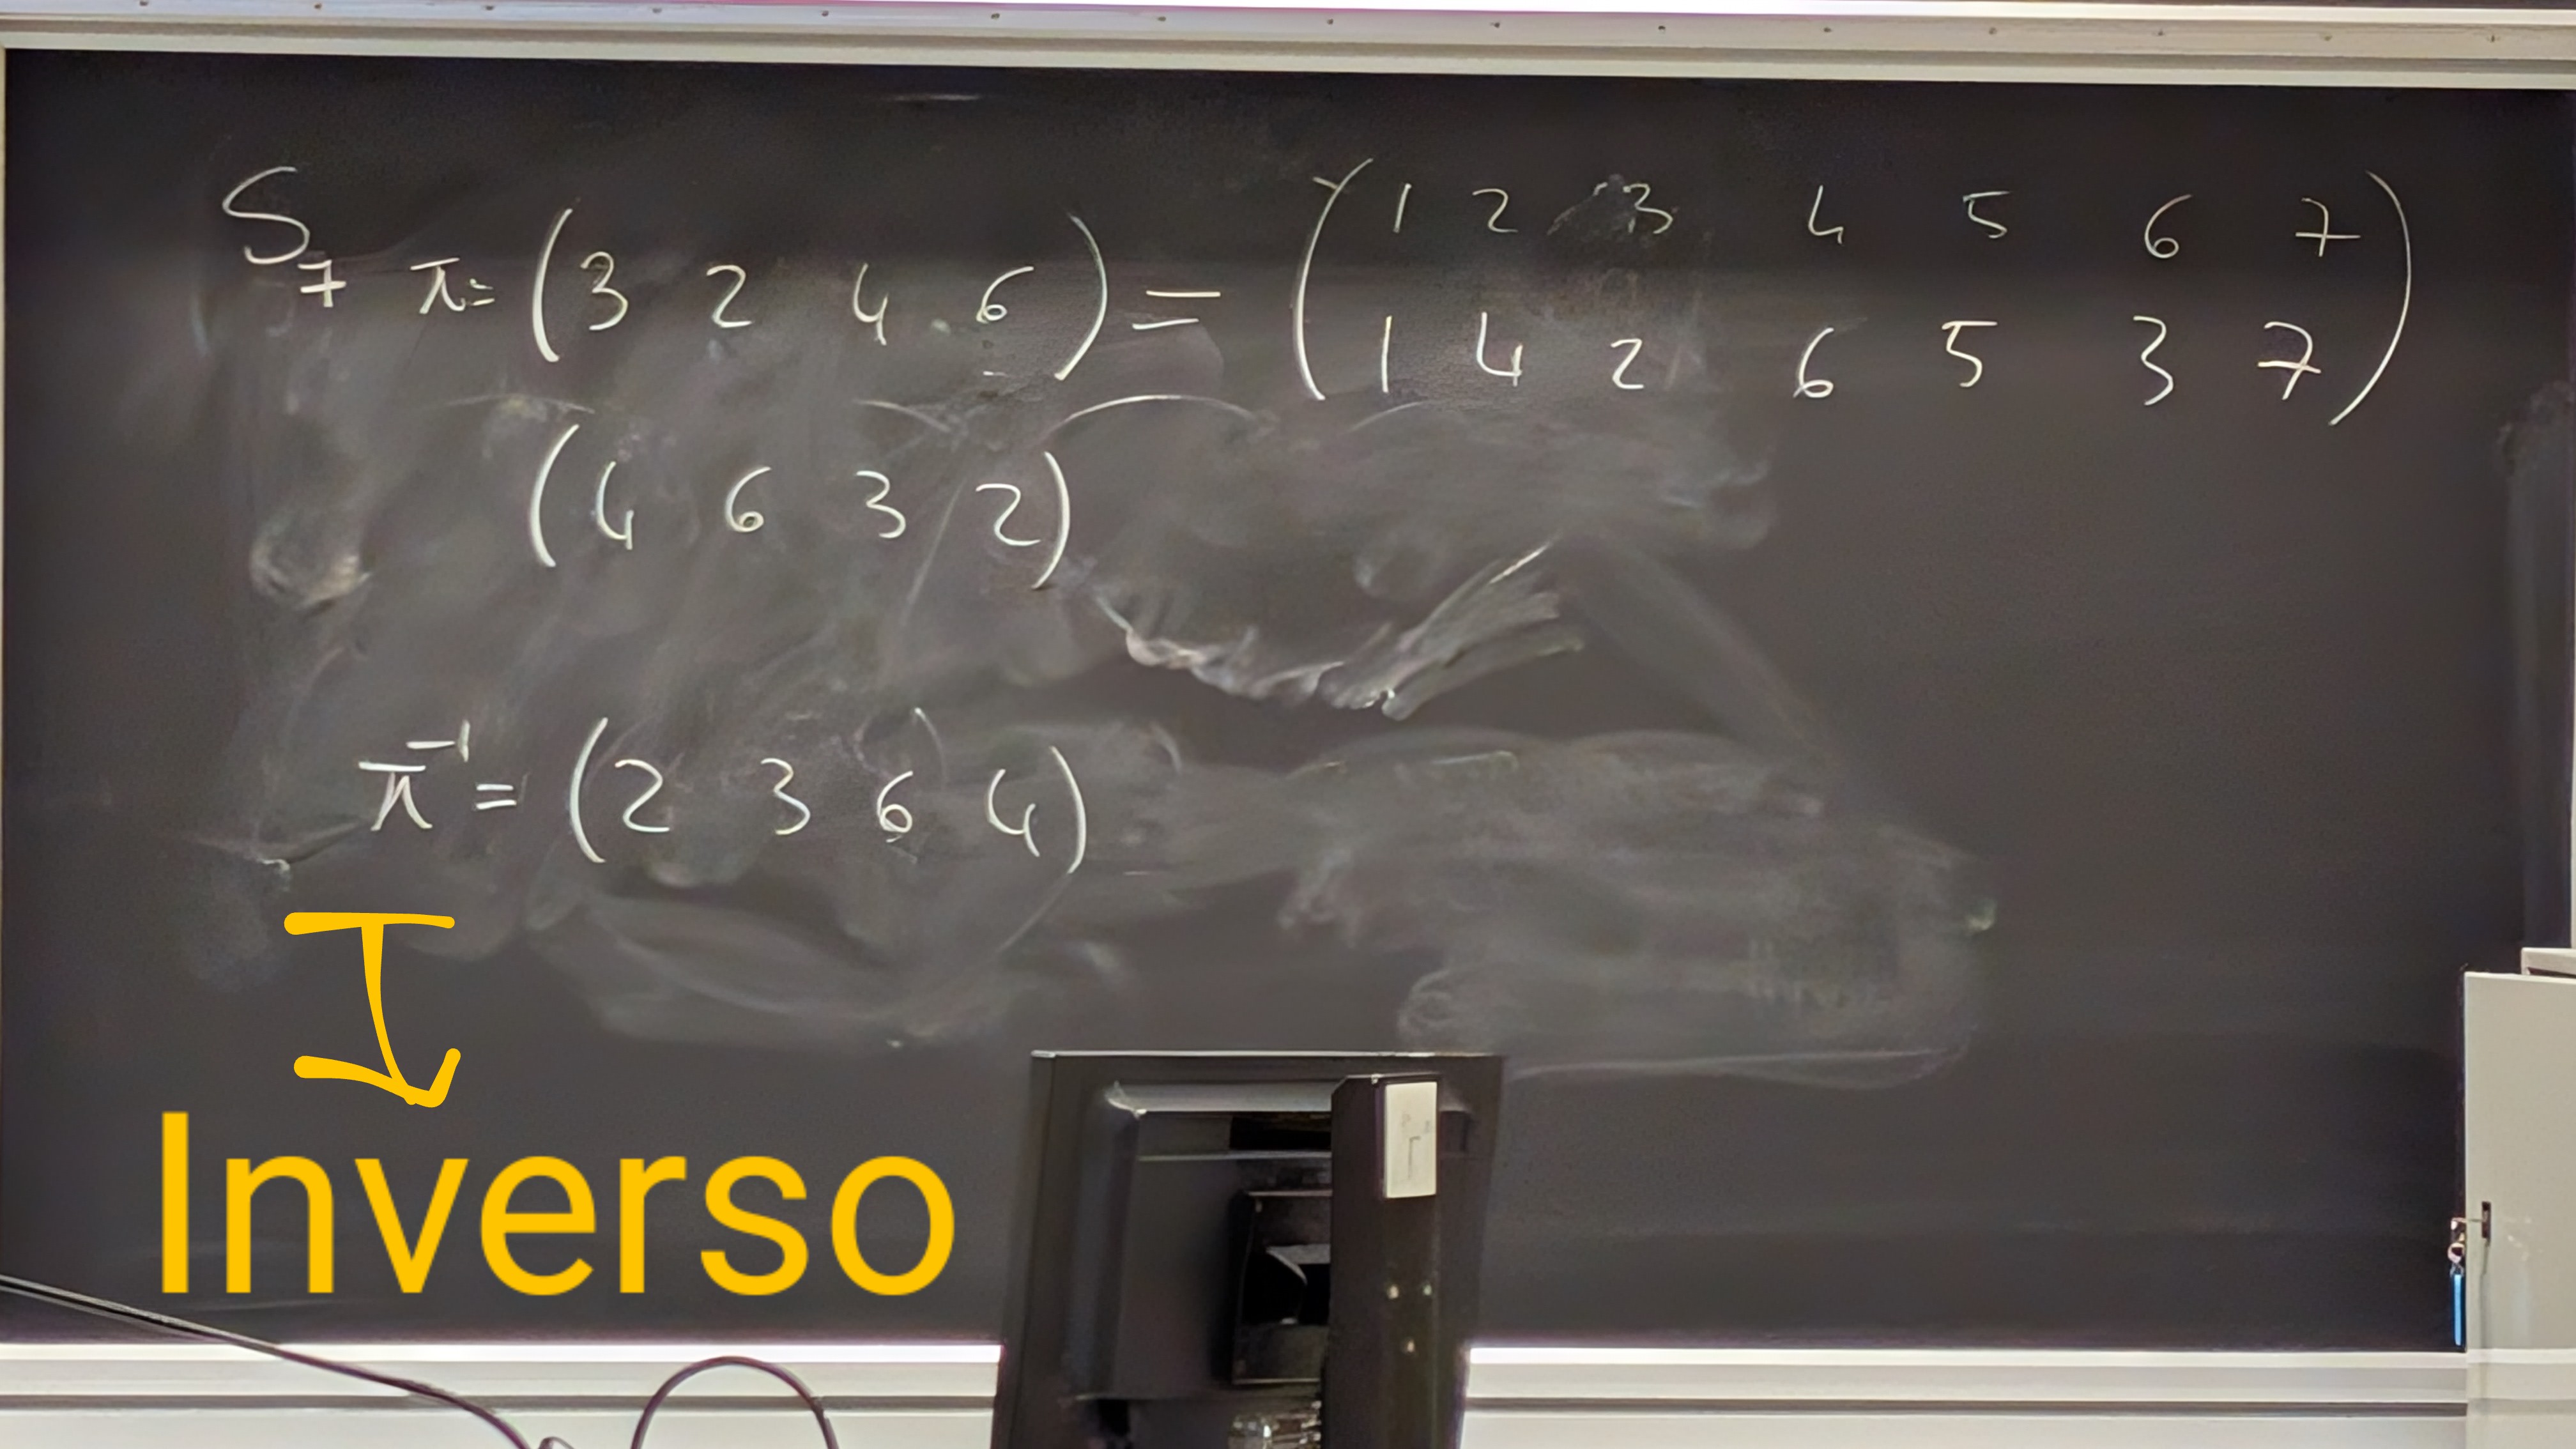 S₇ π = (3 2 4 6) = (1 2 3 4 5 6 7
1 4 2 6 5 3 7)
(4 6 3 2)
π⁻¹ = (2 3 6 4)
Inverso